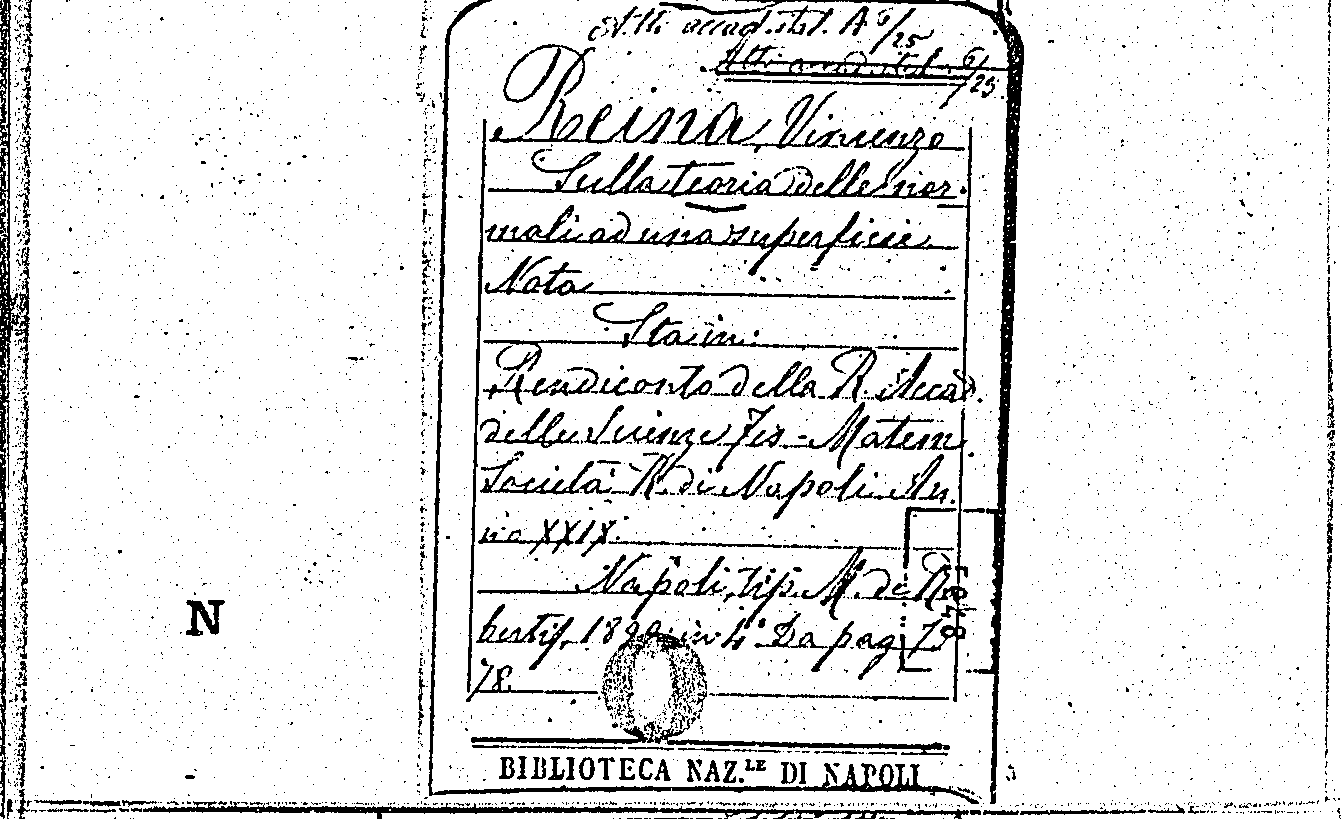 Atti accad. ital. A 6/25
Atti accad. ital. 6/25
Reina, Vincenzo
Sulla teoria delle nor-
mali ad una superficie.
Nota
Sta in:
Rendiconto della R. Accad.
delle Scienze Fis-Matem.
Società R. di Napoli An-
no XXIX.
Napoli, tip. M. de Ru
bertis, 1890 in 4° Da pag. 73
78.
N
BIBLIOTECA NAZ.LE DI NAPOLI